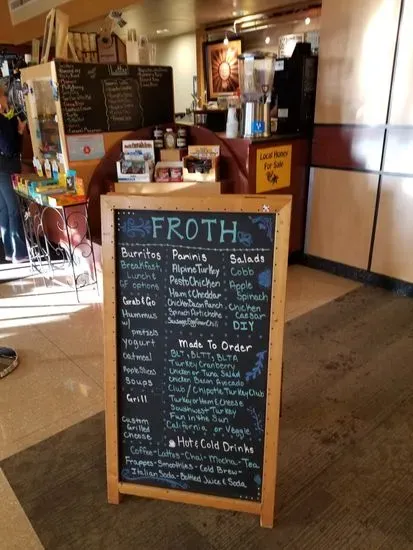 Lattes
Local Honey
For Sale
FROTH
Burritos
Breakfast
Lunch &
GF options
Grab & Go
Hummus
w/
pretzels
Yogurt
Oatmeal
Apple Slices
Soups
Grill
Custom
Grilled
Cheese
Paninis
Alpine Turkey
Pesto Chicken
Ham & Cheddar
Chicken Bacon Ranch
Spinach Artichoke
Sausage, Egg, Green Chili
Salads
Cobb
Apple
Spinach
Chicken
Caesar
DIY
Made To Order
BLT, BLTT, BLTA
Turkey Cranberry
Chicken or Tuna Salad
Chicken Bacon Avocado
Club / Chipotle Turkey Club
Turkey or Ham & Cheese
Southwest Turkey
Fun in the Sun
California or Veggie
Hot & Cold Drinks
Coffee-Lattes-Chai-Mocha-Tea
Frappes-Smoothies-Cold Brew-
Italian Soda-Bottled Juice & Soda